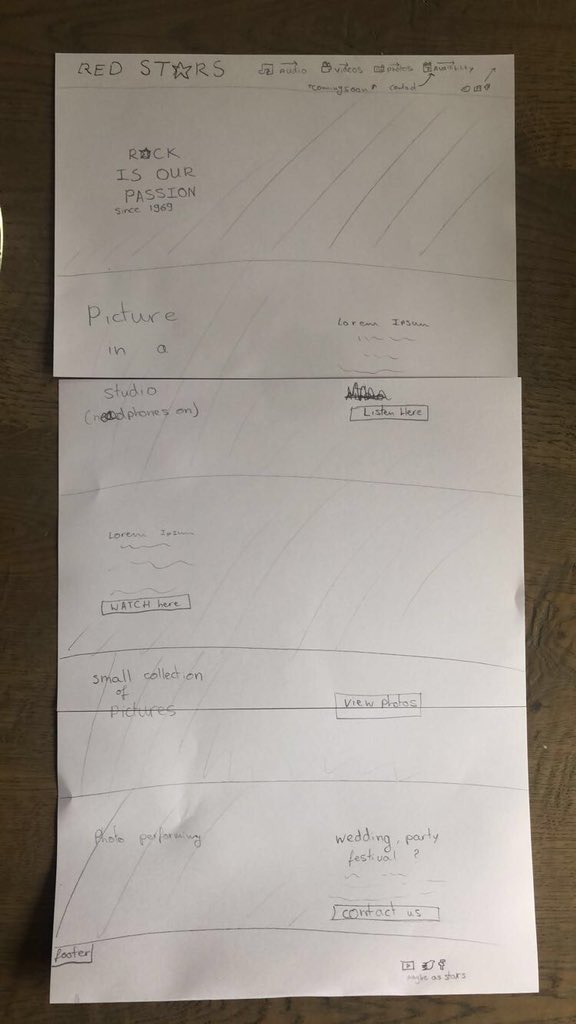 RED ST☆RS
AUDIO
VIDEOS
photos
"coming soon"
Contact
R☆CK
IS OUR
PASSION
Since 1969
Picture
in a
Lorem Ipsum
studio
phones on)
Listen Here
Lorem Ipsum
WATCH here
small collection
of
pictures
View photos
Photo performing
wedding, party
festival ?
contact us
footer
maybe as stars